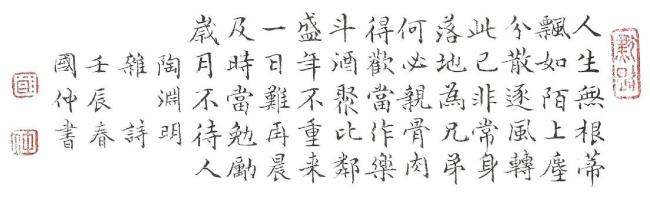 人生無根蒂
飄如陌上塵
分散逐風轉
此已非常身
落地為兄弟
何必親骨肉
得歡當作樂
斗酒聚比鄰
盛年不重来
一日難再晨
及時當勉勵
歳月不待人
陶淵明
雜詩
壬辰春
國仲書